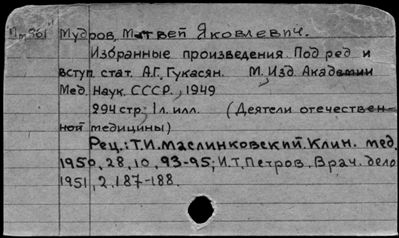 Мудров, Матвей Яковлевич.
Избранные произведения. Под ред и
вступ. стат. А.Г. Гукасян. М. Изд. Академии
Мед. Наук. СССР., 1949
294 стр., 1 л. илл. (Деятели отечествен-
ной медицины)
Рец.: Т.И. Маслинковский. Клин. мед.
1950, 28, 10, 93-95; И.Т. Петров. Врач. дело
1951, 2. 187-188.